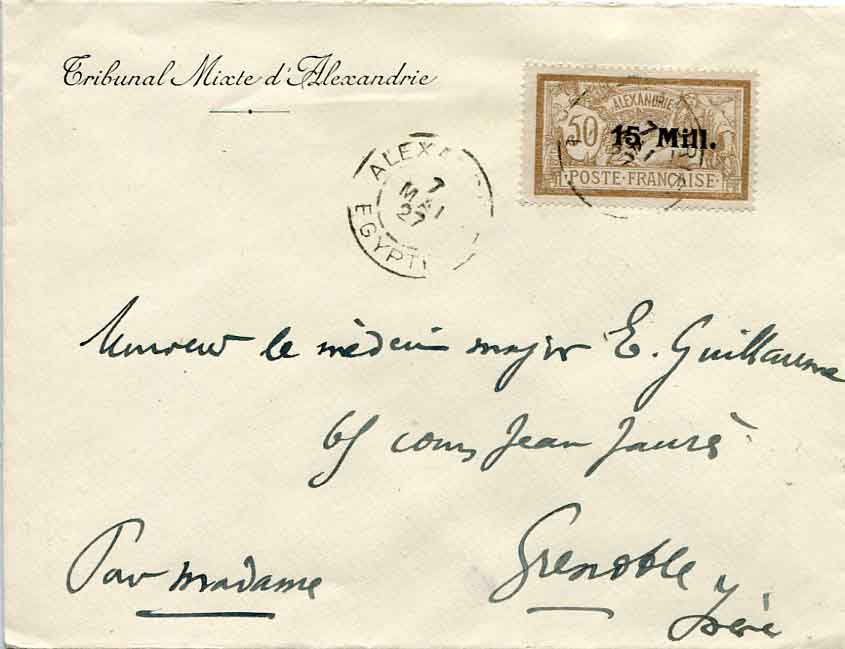 Tribunal Mixte d'Alexandrie
ALEXANDRIE
50
15 Mill.
POSTE FRANÇAISE
ALEXA
7
MAI
27
EGYPT
Monsieur le médecin major E. Guillaume
cours Jean Jaurès
Par madame
Grenoble
Isère